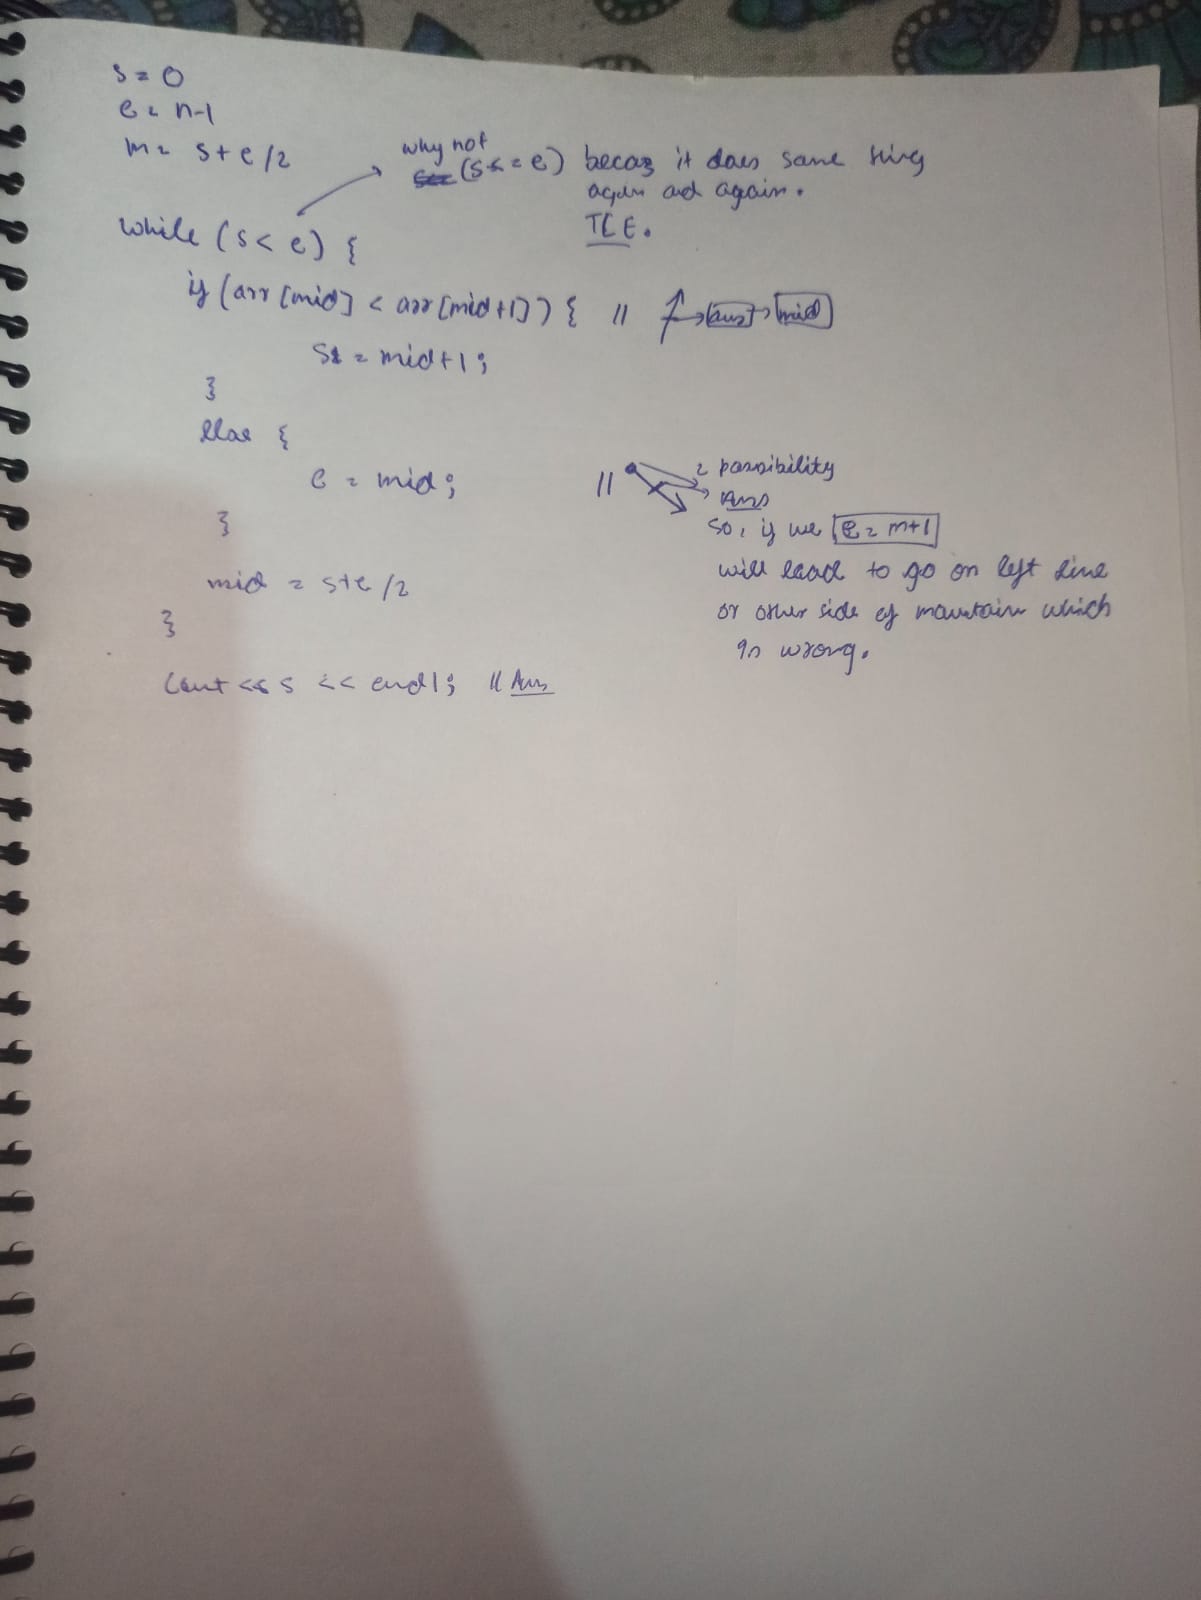 s = 0
e = n-1
m = s+e/2
why not
(s<=e) becaz it does same thing
again and again.
TLE.
while (s< e) {
if (arr[mid] < arr[mid+1]) { // ans mid
s = mid+1;
}
else {
e = mid;
// 2 possibility
Ans
}
so, if we e = m+1
will lead to go on left line
or other side of mountain which
is wrong.
mid = s+e/2
}
cout << s << endl; // Ans